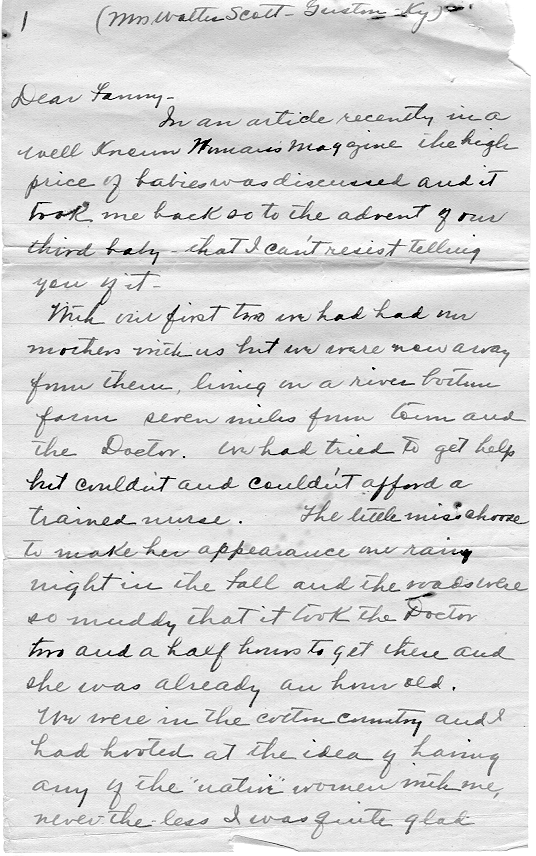 1 (Mrs Walter Scott - Guston - Ky)
Dear Fanny -
In an article recently in a
well known Woman's Magazine the high
price of babies was discussed and it
took me back so to the advent of our
third baby - that I can't resist telling
you of it -
With our first two we had had our
mothers with us but we were now away
from them, living on a river bottom
farm seven miles from town and
the Doctor. We had tried to get help
but couldn't and couldn't afford a
trained nurse. The little miss choose
to make her appearance one rainy
night in the fall and the roads were
so muddy that it took the Doctor
two and a half hours to get there and
she was already an hour old.
We were in the cotton country and I
had hooted at the idea of having
any of the "native" women with me,
never-the-less I was quite glad